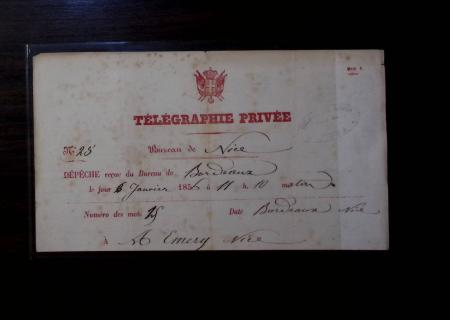 TÉLÉGRAPHIE PRIVÉE
N. 25 Bureau de Nice
DÉPÊCHE reçue du Bureau de Bordeaux
le jour 6 Janvier 185 à 11 h. 10 matin
Numéro des mots 25 Date Bordeaux Nice
à A Emery Nice